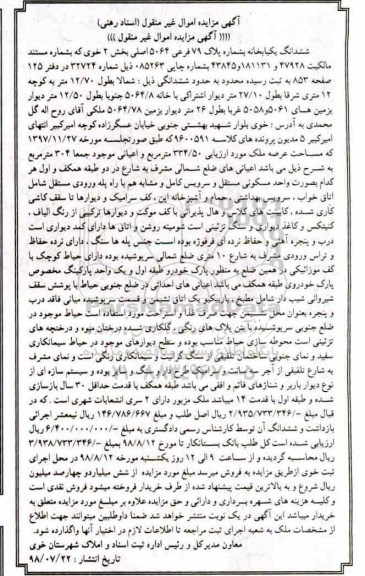 آگهی مزایده اموال غیر منقول (اسناد رهنی)
(((( آگهی مزایده اموال غیر منقول ))))
ششدانگ یکبابخانه بشماره پلاک ۷۹ فرعی از ۵۰۶۴ اصلی بخش ۲ خوی که بشماره مستند
مالکیت ۴۷۹۲۸ و ۱۸۱۱۳۱ و ۴۳۸۴۵ بشماره چاپی ۰۸۵۲۶۳ ذیل شماره ۳۲۷۲۴ در دفتر ۱۲۵
صفحه ۸۵۳ به ثبت رسیده محدود به حدود ششدانگی ذیل : شمالا بطول ۱۲/۷۰ متر به کوچه
۱۲ متری شرقا بطول ۲۷/۱۰ متر دیوار اشتراکی با خانه ۵۰۶۴/۸ جنوبا بطول ۱۲/۵۰ متر دیوار
بزمین های ۵۰۶۱ و ۵۰۵۸ غربا بطول ۲۶ متر دیوار بزمین ۵۰۶۴/۷۸ ملکی آقای روح اله گل
محمدی به آدرس : خوی بلوار شهید بهشتی جنوبی خیابان عسگرزاده کوچه امیرکبیر انتهای
امیرکبیر ۵ مدیون پرونده های کلاسه ۹۶۰۰۵۹۱ که طبق صورتجلسه مورخه ۱۳۹۷/۱۱/۲۷
که مساحت عرصه ملک مورد ارزیابی ۳۳۴/۵۰ مترمربع و اعیانی موجود جمعا ۳۰۴ مترمربع
به شرح ذیل می باشد اعیانی های ضلع شمالی مشرف به شارع در دو طبقه همکف و اول هر
کدام بصورت واحد مسکونی مستقل و سرویس کامل و مشابه هم با راه پله ورودی مستقل شامل
اتاق خواب ، سرویس بهداشتی و حمام و آشپزخانه این ، کف سرامیک و دیوارها تا سقف کاشی
کاری شده ، کابینت های کلاس و هال پذیرائی با کف موکت و دیوارها ترکیبی از رنگ الیاف ،
کنیتکس و کاغذ دیواری و سنگ تزئینی است شومینه روشن و اتاق ها دارای کمد دیواری است
درب و پنجره آهنی و حفاظ نرده ای فرفوژه بوده است جنس پله ها سنگ ، دارای نرده حفاظ
و تراس ورودی مشرف به شارع ۱۰ متری ضلع شمالی سرپوشیده بوده دارای حیاط کوچک با
کف موزائیکی در همین ضلع به منظور پارک خودرو طبقه اول و یک واحد پارکینگ مخصوص
پارک خودروی طبقه همکف می باشد اعیانی های احداثی در ضلع جنوبی حیاط با پوشش سقف
شیروانی شیب دار شامل مطبخ ، باربکیو یک اتاق نشیمن و قسمت سرپوشیده میانی فاقد درب
و پنجره بعنوان محل نشیمن جهت صرف غذا و استراحت مورد استفاده است حیاط موجود در
ضلع جنوبی سرپوشیده با بتن پلاک های رنگی ، گلکاری شده درختان میوه و درختچه های
تزئینی است محوطه سازی حیاط مناسب بوده و سطح دیوارهای موجود در حیاط سیمانکاری
سفید و نمای جنوبی ساختمان تلفیقی از سنگ گرانیت و سیمانکاری رنگی است و نمای مشرف
به شارع تلفیقی از آجر سه سانت و سرامیک آجری و سنگ و سایر بوده و سیستم سازه ای از
نوع دیوار باربر و شناژهای قائم و افقی می باشد طبقه همکف با قدمت حداقل ۳۰ سال بازسازی
شده و طبقه اول با قدمت ۱۴ میباشد ملک مزبور دارای ۲ سری انشعابات شهری است . که در
قبال مبلغ -/۲/۹۳۵/۷۳۳/۳۴۶ ریال اصل طلب و مبلغ ۱۴۶/۷۸۶/۶۶۷ ریال نیمعشر اجرائی
بازداشت و ششدانگ آن توسط کارشناس رسمی دادگستری به مبلغ -/۶/۴۰۰/۰۰۰/۰۰۰ ریال
ارزیابی شده است کل طلب بانک بستانکار تا مورخ ۹۸/۸/۱۲ بمبلغ -/۳/۹۳۸/۷۳۳/۳۴۶
ریال محاسبه گردیده و از ساعت ۹ الی ۱۲ روز یکشنبه مورخه ۹۸/۸/۱۲ در محل اجرای
ثبت خوی ازطریق مزایده به فروش میرسد مبلغ مورد مزایده از شش میلیاردو چهارصد میلیون
ریال شروع و به بالاترین قیمت پیشنهاد شده از طرف خریدار فروخته میشود فروش نقدی است
و کلیه هزینه های شهره برداری و دارائی و حق مزایده علاوه بر مبلغ مورد مزایده متعلق به
خریدار میباشد این آگهی در یک نوبت منتشر خواهد شد ضمنا داوطلبین میتوانند جهت اطلاع
از مشخصات ملک به شعبه اجرای ثبت مراجعه تا اطلاعات لازم در اختیار آنها واگذارده شود.
معاون مدیرکل و رئیس اداره ثبت اسناد و املاک شهرستان خوی
تاریخ انتشار : ۹۸/۰۷/۲۲